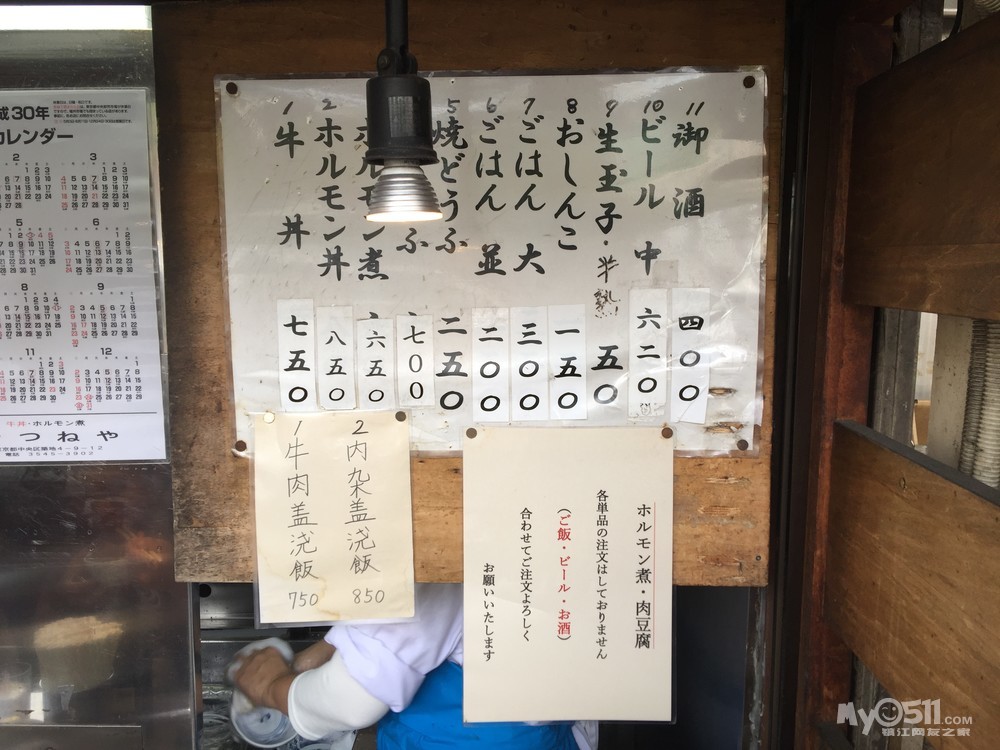 成30年
カレンダー
牛丼・ホルモン煮
きつねや
東京都中央区築地4-9-12
電話 3545-3902
1 牛丼 七五〇
2 ホルモン丼 八五〇
ホルモン煮 六五〇
ふ 七〇〇
5 焼どうふ 二五〇
6 ごはん 並 二〇〇
7 ごはん 大 三〇〇
8 おしんこ 一五〇
9 生玉子・半熟 五〇
10 ビール 中 六二〇
11 御酒 四〇〇
1 牛肉盖浇飯 750
2 内杂盖浇飯 850
ホルモン煮・肉豆腐
各単品の注文はしておりません
(ご飯・ビール・お酒)
合わせてご注文よろしく
お願いいたします
My0511.com
镇江网友之家